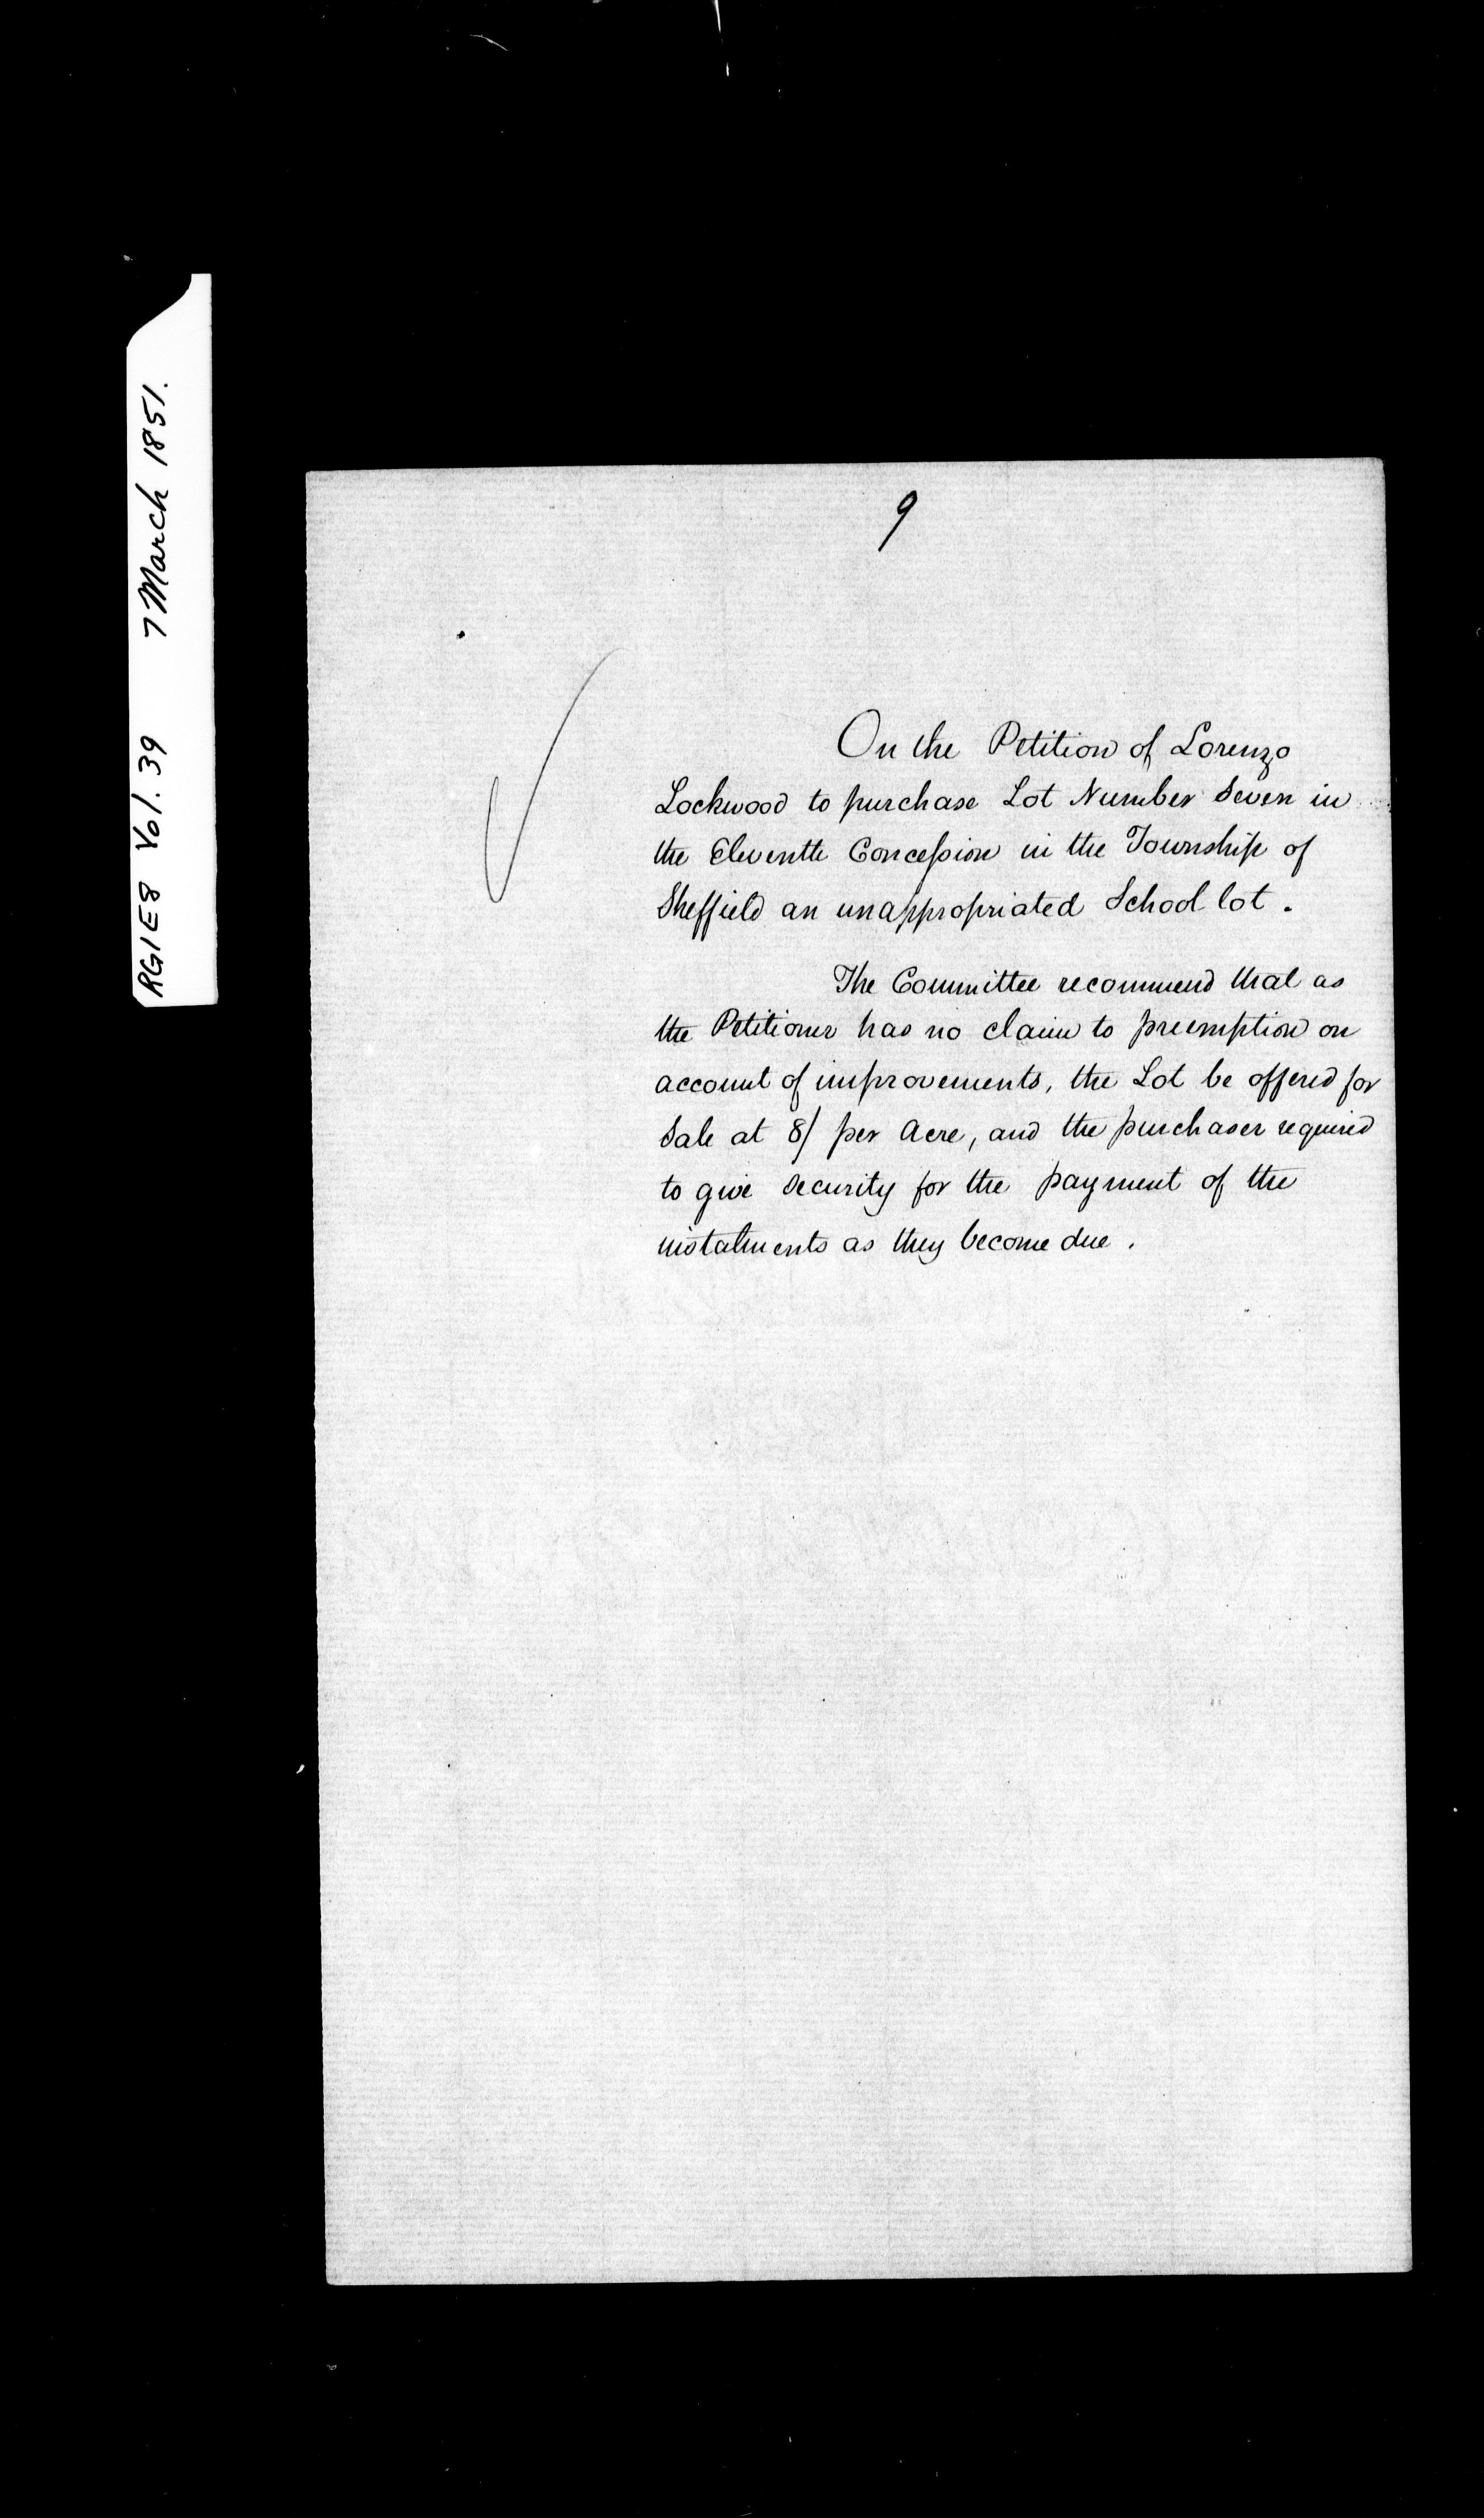 RG1E8 Vol. 39 7 March 1851.
9
On the Petition of Lorenzo
Lockwood to purchase Lot Number Seven in
the Eleventh Concession in the Township of
Sheffield an unappropriated School lot.
The Committee recommend that as
the Petitioner has no claim to preemption on
account of improvements, the Lot be offered for
Sale at 8/ per Acre, and the purchaser required
to give Security for the payment of the
instalments as they become due.